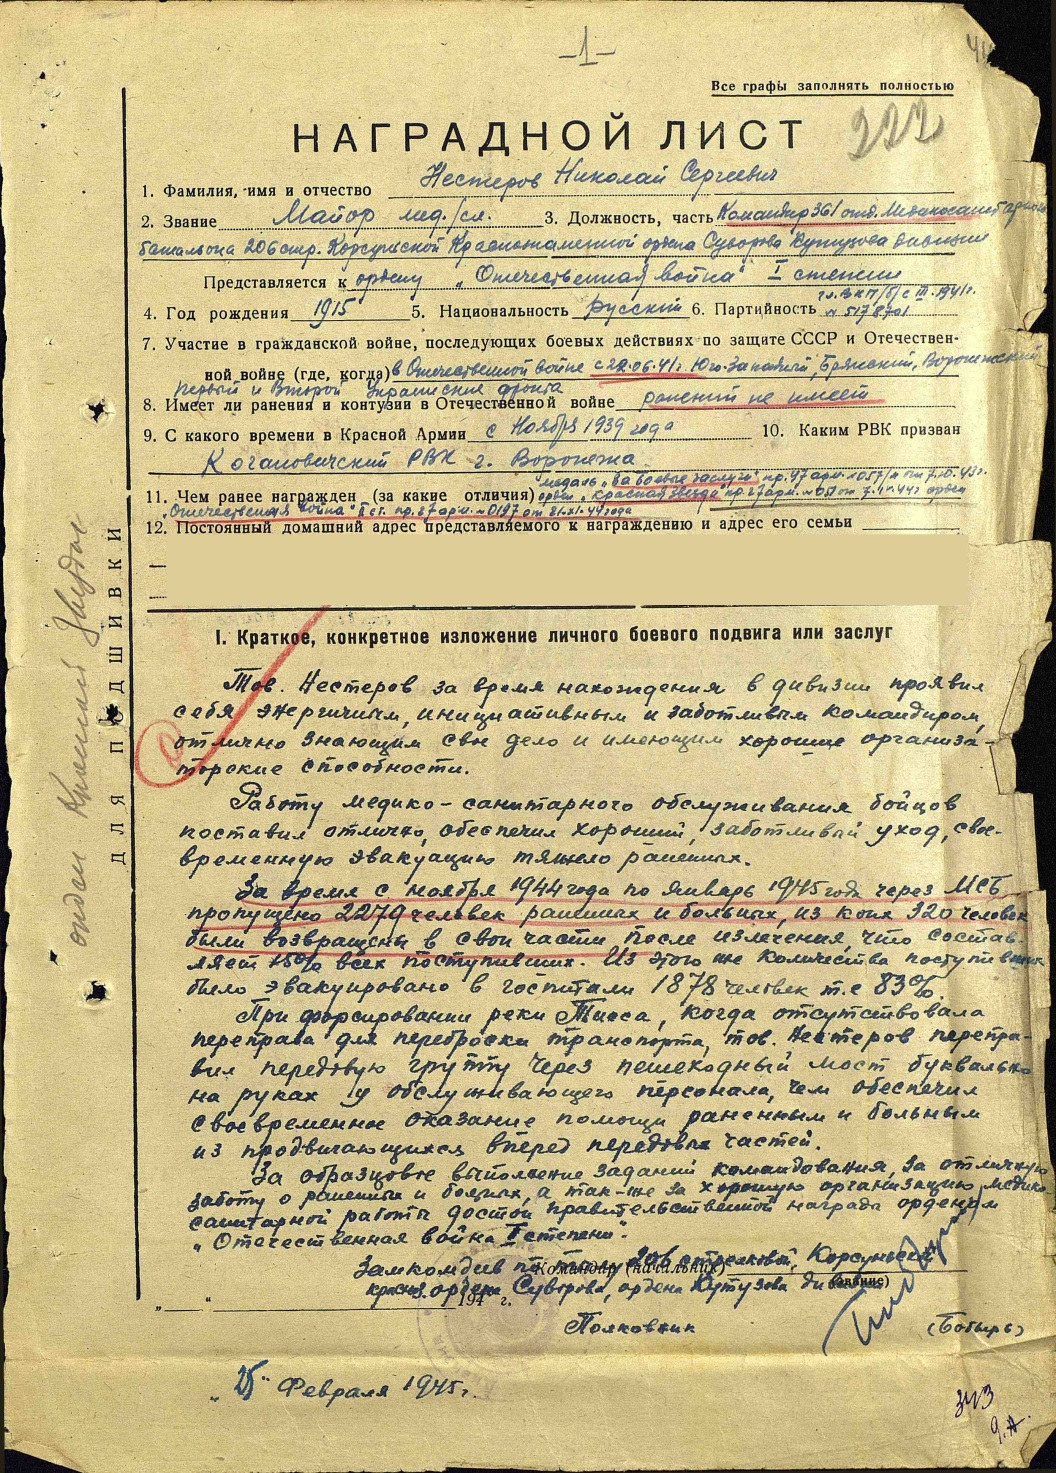 -1-
Все графы заполнять полностью
НАГРАДНОЙ ЛИСТ
222
1. Фамилия, имя и отчество Нестеров Николай Сергеевич
2. Звание Майор мед./сл. 3. Должность, часть Командир 361 отд. Медикосанитарного
батальона 206 стр. Корсунской Краснознаменной ордена Суворова Кутузова дивизии
Представляется к ордену „Отечественная война" I степени
4. Год рождения 1915 5. Национальность Русский 6. Партийность чл. ВКП/б/ с III.1941г.
№ 5178701
7. Участие в гражданской войне, последующих боевых действиях по защите СССР и Отечествен-
ной войне (где, когда) в Отечественной войне с 22.06.41г. Юго-Западный, Брянский, Воронежский
первый и Второй Украинские фронта
8. Имеет ли ранения и контузии в Отечественной войне ранений не имеет
9. С какого времени в Красной Армии с Ноября 1939 года 10. Каким РВК призван
Когановичский РВК г. Воронежа
медаль „За боевые заслуги" пр. 47 арм. № 057/н от 7.10.43г.
11. Чем ранее награжден (за какие отличия) орден „Красная Звезда" пр. 27 арм. № 051 от 7.IV.44г орден
„Отечественная Война" II ст. пр. 27 арм. № 0197 от 21.XI.44 года
12. Постоянный домашний адрес представляемого к награждению и адрес его семьи
ДЛЯ ПОДШИВКИ
I. Краткое, конкретное изложение личного боевого подвига или заслуг
Тов. Нестеров за время нахождения в дивизии проявил
себя энергичным, инициативным и заботливым командиром,
отлично знающим свое дело и имеющим хорошие организа-
торские способности.
Работу медико-санитарного обслуживания бойцов
поставил отлично, обеспечил хороший, заботливый уход, свое-
временную эвакуацию тяжело раненных.
За время с ноября 1944 года по январь 1945 года через МСБ
пропущено 2279 человек раненных и больных, из коих 320 человек
были возвращены в свои части после излечения, что состав-
ляет 15% всех поступивших. Из этого же количества поступивших
было эвакуировано в госпитали 1878 человек т.е 83%.
При форсировании реки Тисса, когда отсутствовала
переправа для переброски транспорта, тов. Нестеров перепра-
вил передовую группу через пешеходный мост буквально
на руках у обслуживающего персонала, чем обеспечил
своевременное оказание помощи раненным и больным
из продвигающихся вперед передовых частей.
За образцовое выполнение заданий командования, за отличную
заботу о раненных и больных, а так-же за хорошую организацию медико
санитарной работы достоин правительственной награды орденом
„Отечественная война I степени".
Замкомдив по тылу 206 стрелковой, Корсунской
Командир (начальник)
(звание)
красн. ордена Суворова, ордена Кутузова дивизии
„ " 194 г.
Полковник (Бобырь)
„25" Февраля 1945г.
343